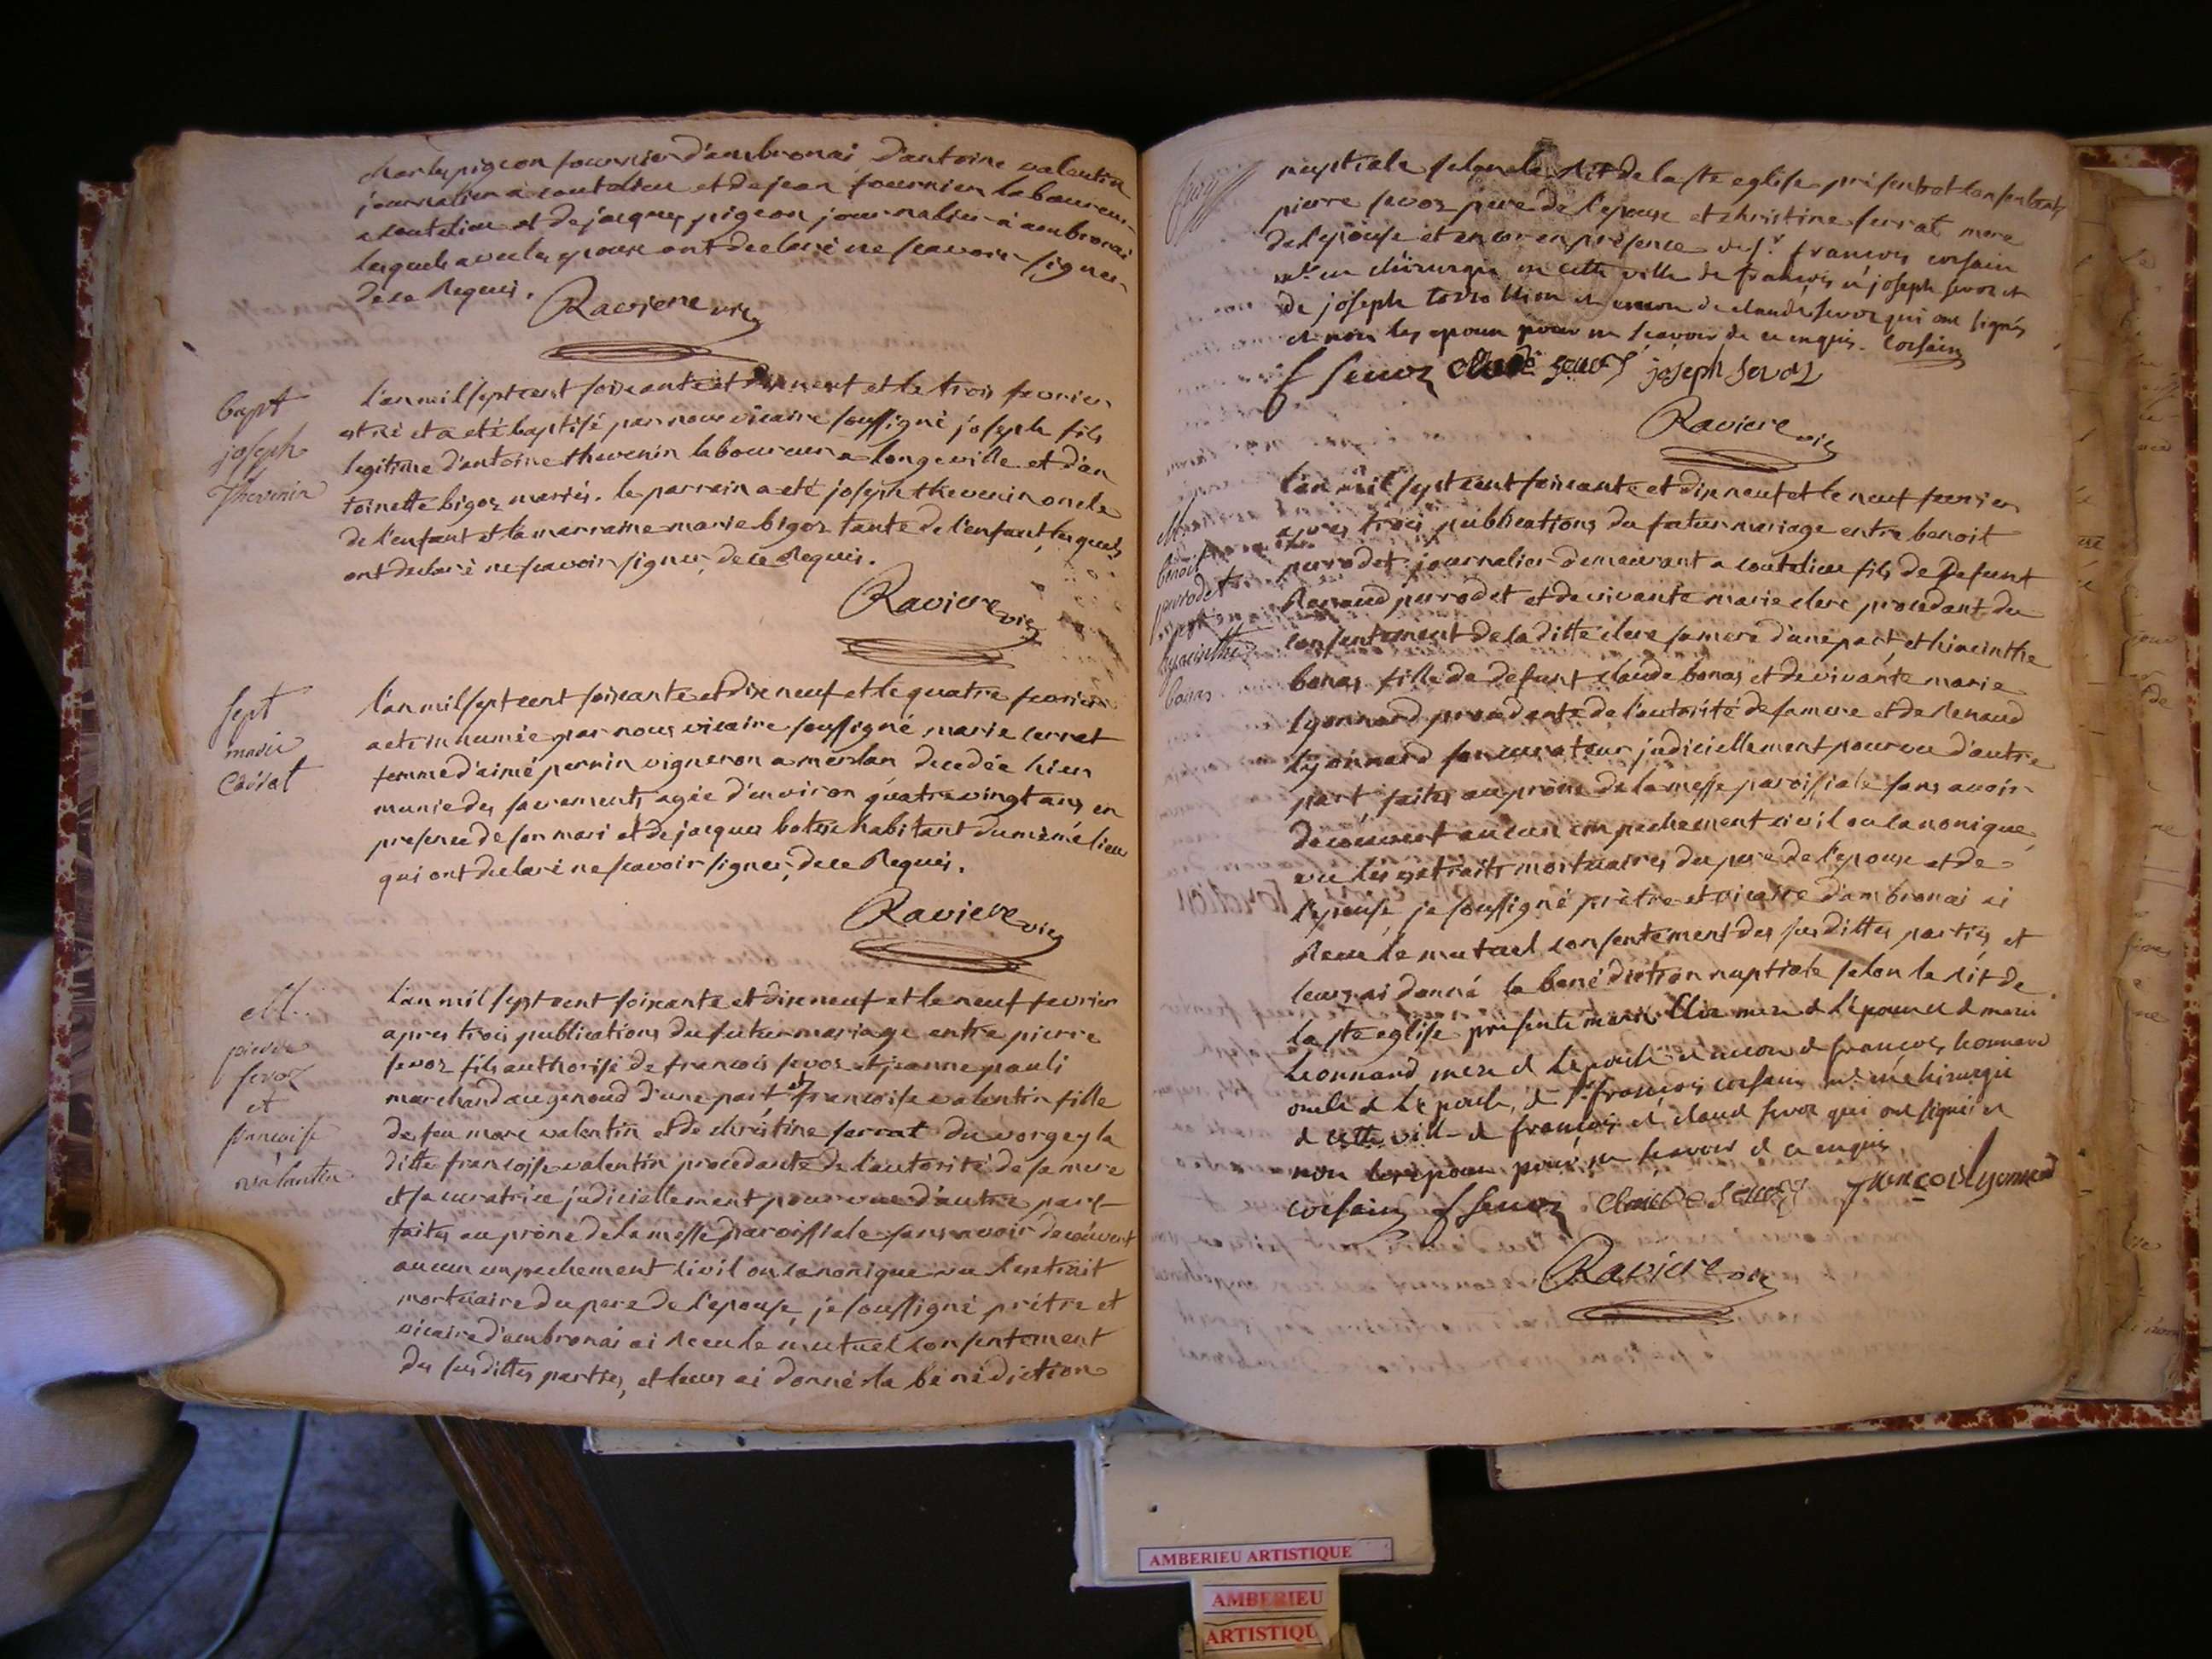 charles pigeon fournier d'ambronai d'antoine valentin
journalier a coutelieu et de jean fournier laboureur
a coutelieu et de jacques pigeon journalier a ambronai
lesquels avec les epoux ont declaré ne scavoir signer
de ce Requis.
Raviere vic
Bapt
joseph
Thevenin
l'an mil sept cent soixante et dix neuf et le trois fevrier
est né et a eté baptisé par nous vicaire soussigné joseph fils
legitime d'antoine thevenin laboureur a longeville et d'an
toinette bigoz mariés. le parrain a eté joseph thevenin oncle
de l'enfant et la marraine marie bigoz tante de l'enfant, lesquels
ont declaré ne scavoir signer, de ce Requis.
Raviere vic
sept
marie
l'an mil sept cent soixante et dix neuf et le quatre fevrier
a eté inhumée par nous vicaire soussigné, marie cerrat
femme d'aimé perrin vigneron a merlan decedée hier
munie des sacrements agée d'environ quatre vingt ans en
presence de son mari et de jacques habitant du même lieu
qui ont declaré ne scavoir signer, de ce Requis.
Raviere vic
M..
pierre
sevoz
et
francoise
valentin
l'an mil sept cent soixante et dix neuf et le neuf fevrier
apres trois publications du futur mariage entre pierre
sevoz fils authorisé de francois sevoz et jeanne pauli
marchand au genoud d'une part et francoise valentin fille
de feu marc valentin et de christine serrat du vorgey la
ditte francoise valentin procedante de l'autorité de sa mere
et sa curatrice judiciellement pourvue d'autre part
faites au prône de la messe paroissiale sans avoir decouvert
aucun empechement civil ou canonique vu l'extrait
mortuaire du pere de l'epouse, je soussigné prétre et
vicaire d'ambronai ai Receu le mutuel consentement
des susdittes parties, et leur ai donné la bénédiction
nuptiale selon le Rit de la ste eglise présents et consentants
pierre sevoz pere de l'epoux et christine serrat mere
de l'epouse et encor en présence de sr. francois corsain
me. en chirurgie en cette ville de francois et joseph sevoz et
de joseph et encor de claude sevoz qui ont signés
et non les epoux pour ne scavoir de ce enquis. Corsain
f sevoz claude sevoz joseph sevoz
Raviere vic
M
benoit
purodet
et
hyacinthe
bonas
l'an mil sept cent soixante et dix neuf et le neuf fevrier
apres trois publications du futur mariage entre benoit
purodet journalier demeurant a coutelieu fils de Defunt
Renaud purodet et de vivante marie clerc procedant du
consentement de la ditte clerc sa mere d'une part, et hiacinthe
bonas fille de defunt claude bonas et de vivante marie
lyonnard procedante de l'autorité de sa mere et de Renaud
lyonnard son curateur judiciellement pourvu d'autre
part faites au prône de la messe paroissiale sans avoir
decouvert aucun empechement civil ou canonique,
vu les extraits mortuaires du pere de l'epoux et de
l'epouse, je soussigné prétre et vicaire d'ambronai ai
Receu le mutuel consentement des susdittes parties et
leur ai donné la bénédiction nuptiale selon le Rit de
la ste eglise présente marie Clerc mere de l'epoux et de marie
Leonnard mere de l'epouse et encor de francois Leonnard
oncle de l'epouse, de sr. francois corsain me. en chirurgie
de cette ville de francois et claude sevoz qui ont signés et
non les epoux pour ne scavoir de ce enquis
corsain f sevoz Claude Sevoz francois lyonnard
Raviere vic
AMBERIEU ARTISTIQUE
AMBERIEU
ARTISTIQU